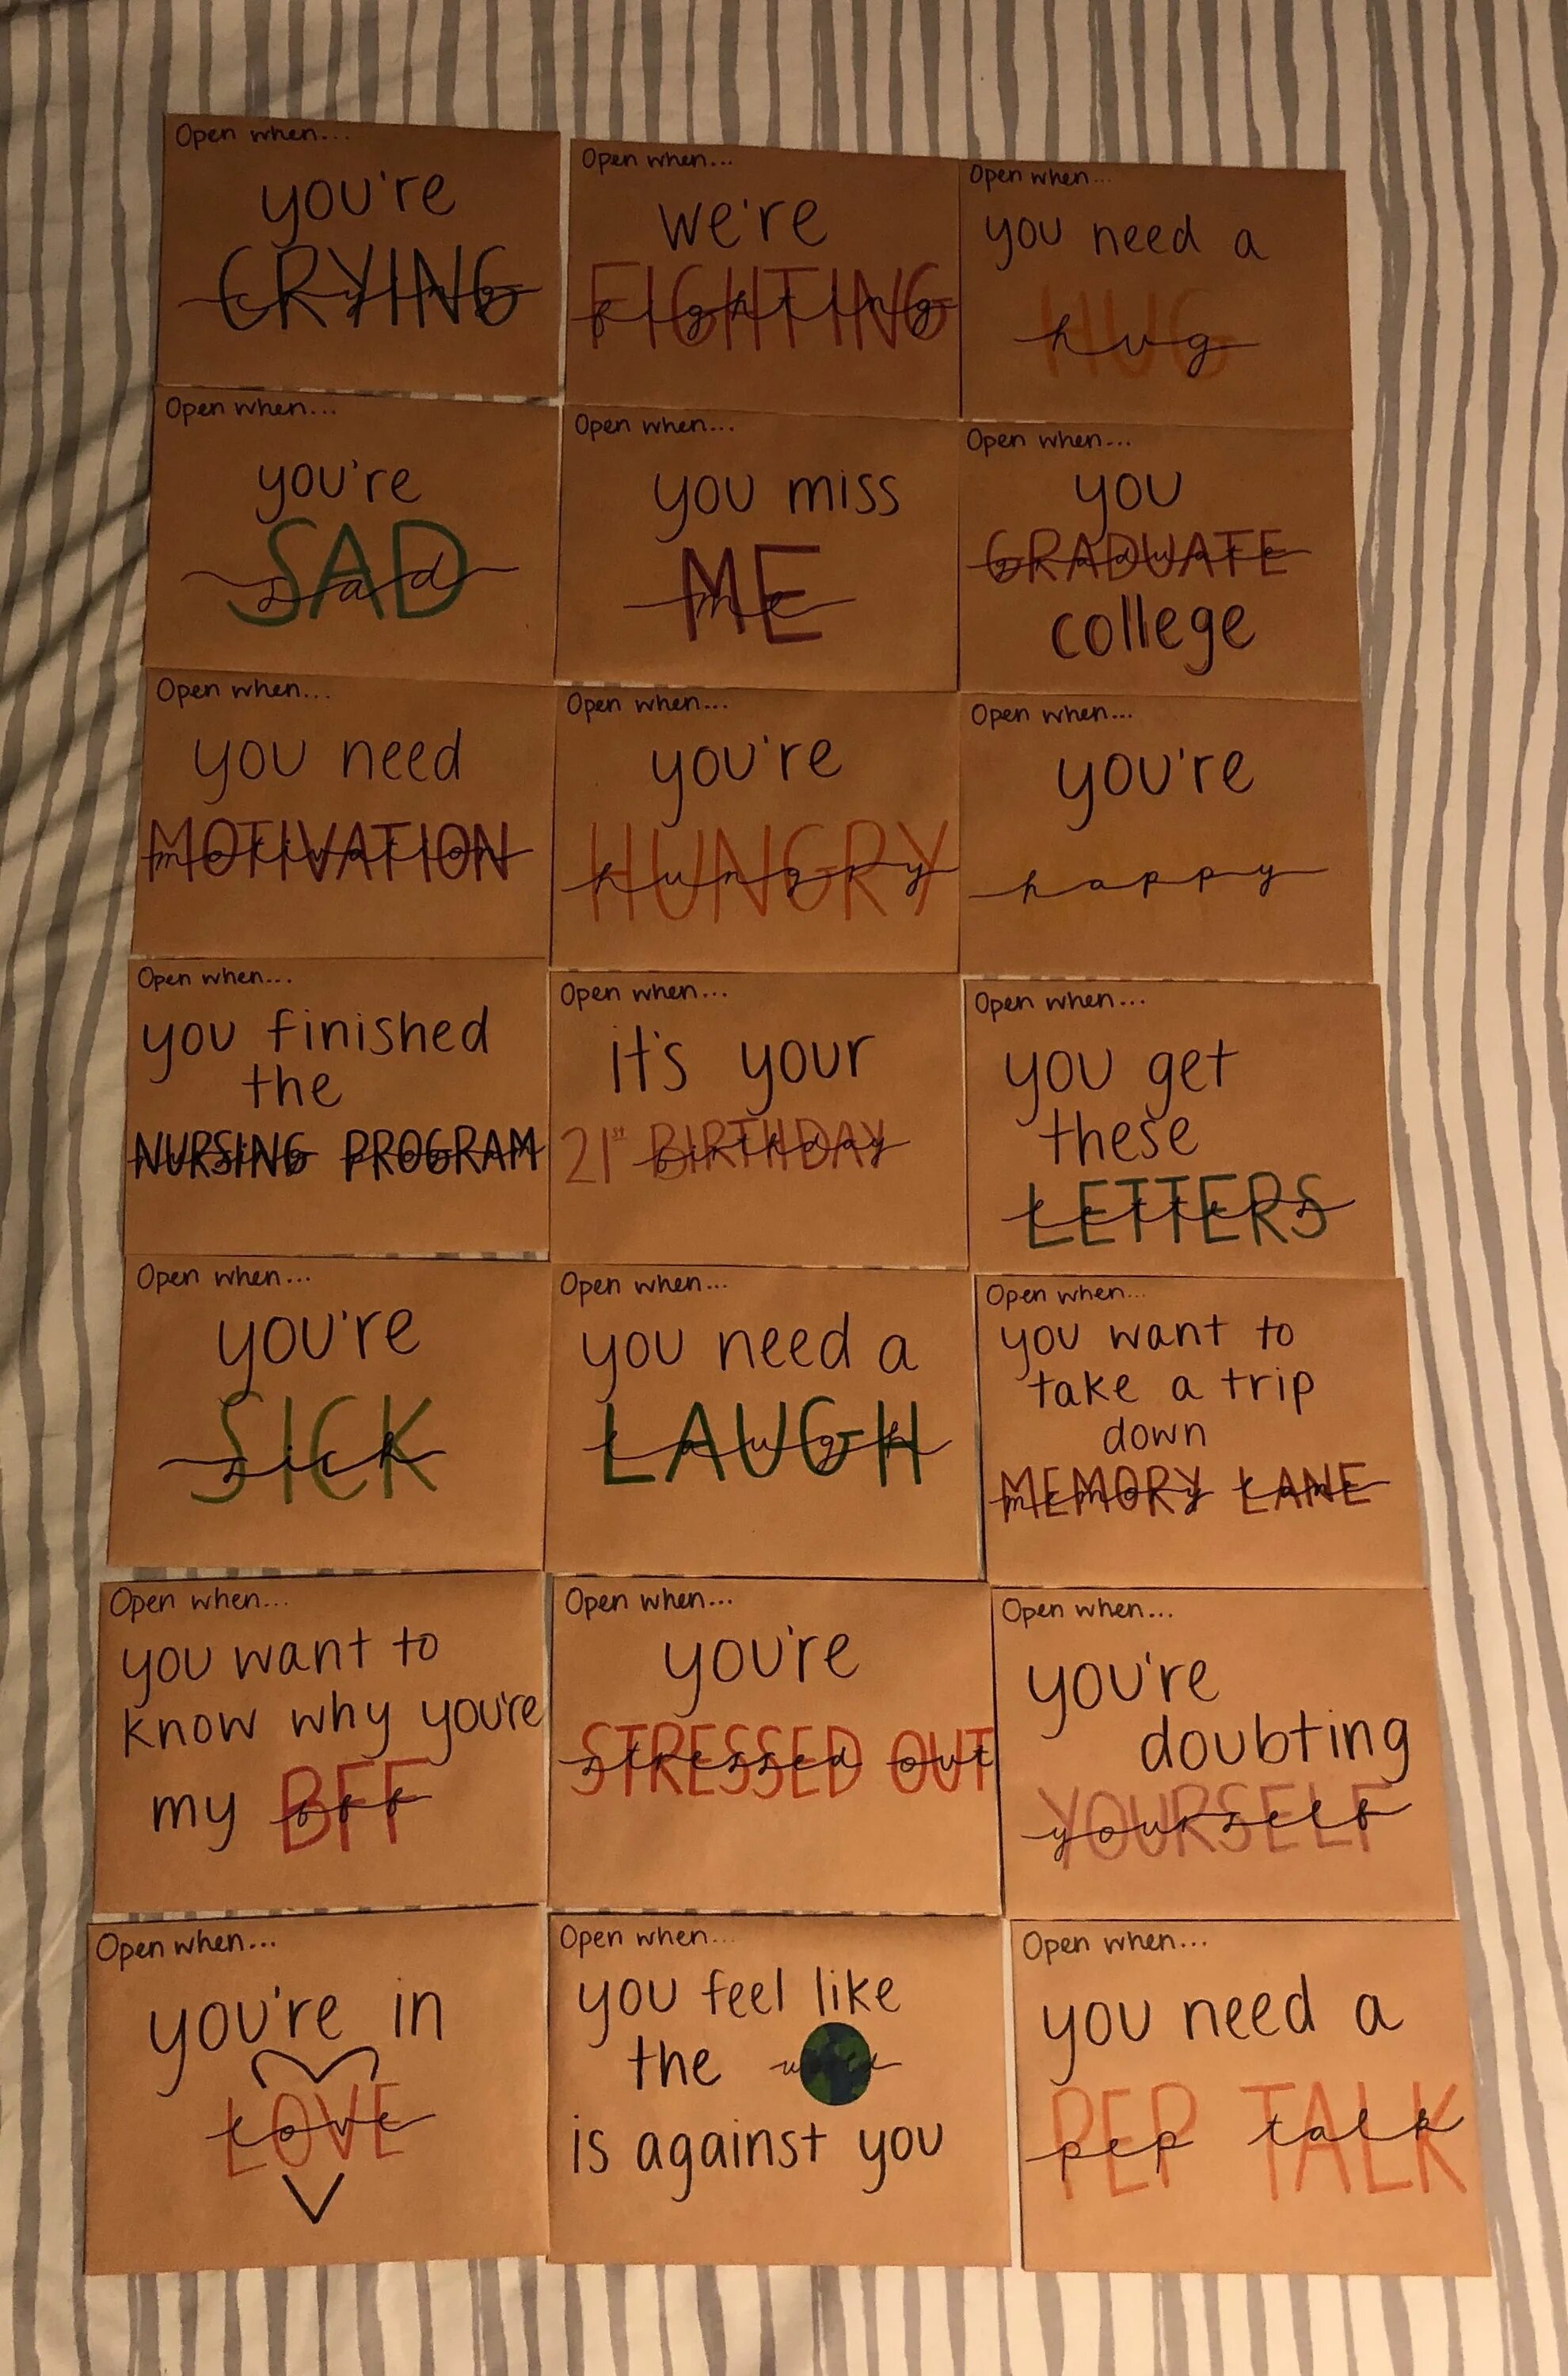 Open when...
you're
CRYING
crying
Open when...
we're
FIGHTING
fighting
Open when...
you need a
HUG
hug
Open when...
you're
SAD
sad
Open when...
you miss
ME
me
Open when...
you
GRADUATE
graduate
college
Open when...
you need
MOTIVATION
motivation
Open when...
you're
HUNGRY
hungry
Open when...
you're
happy
Open when...
you finished
the
NURSING PROGRAM
nursing program
Open when...
it's your
21st BIRTHDAY
birthday
Open when...
you get
these
LETTERS
letters
Open when...
you're
SICK
sick
Open when...
you need a
LAUGH
laugh
Open when...
you want to
take a trip
down
MEMORY LANE
memory lane
Open when...
you want to
know why you're
my BFF
bff
Open when...
you're
STRESSED OUT
stressed out
Open when...
you're
doubting
YOURSELF
yourself
Open when...
you're in
LOVE
love
Open when...
you feel like
the world
is against you
Open when...
you need a
PEP TALK
pep talk